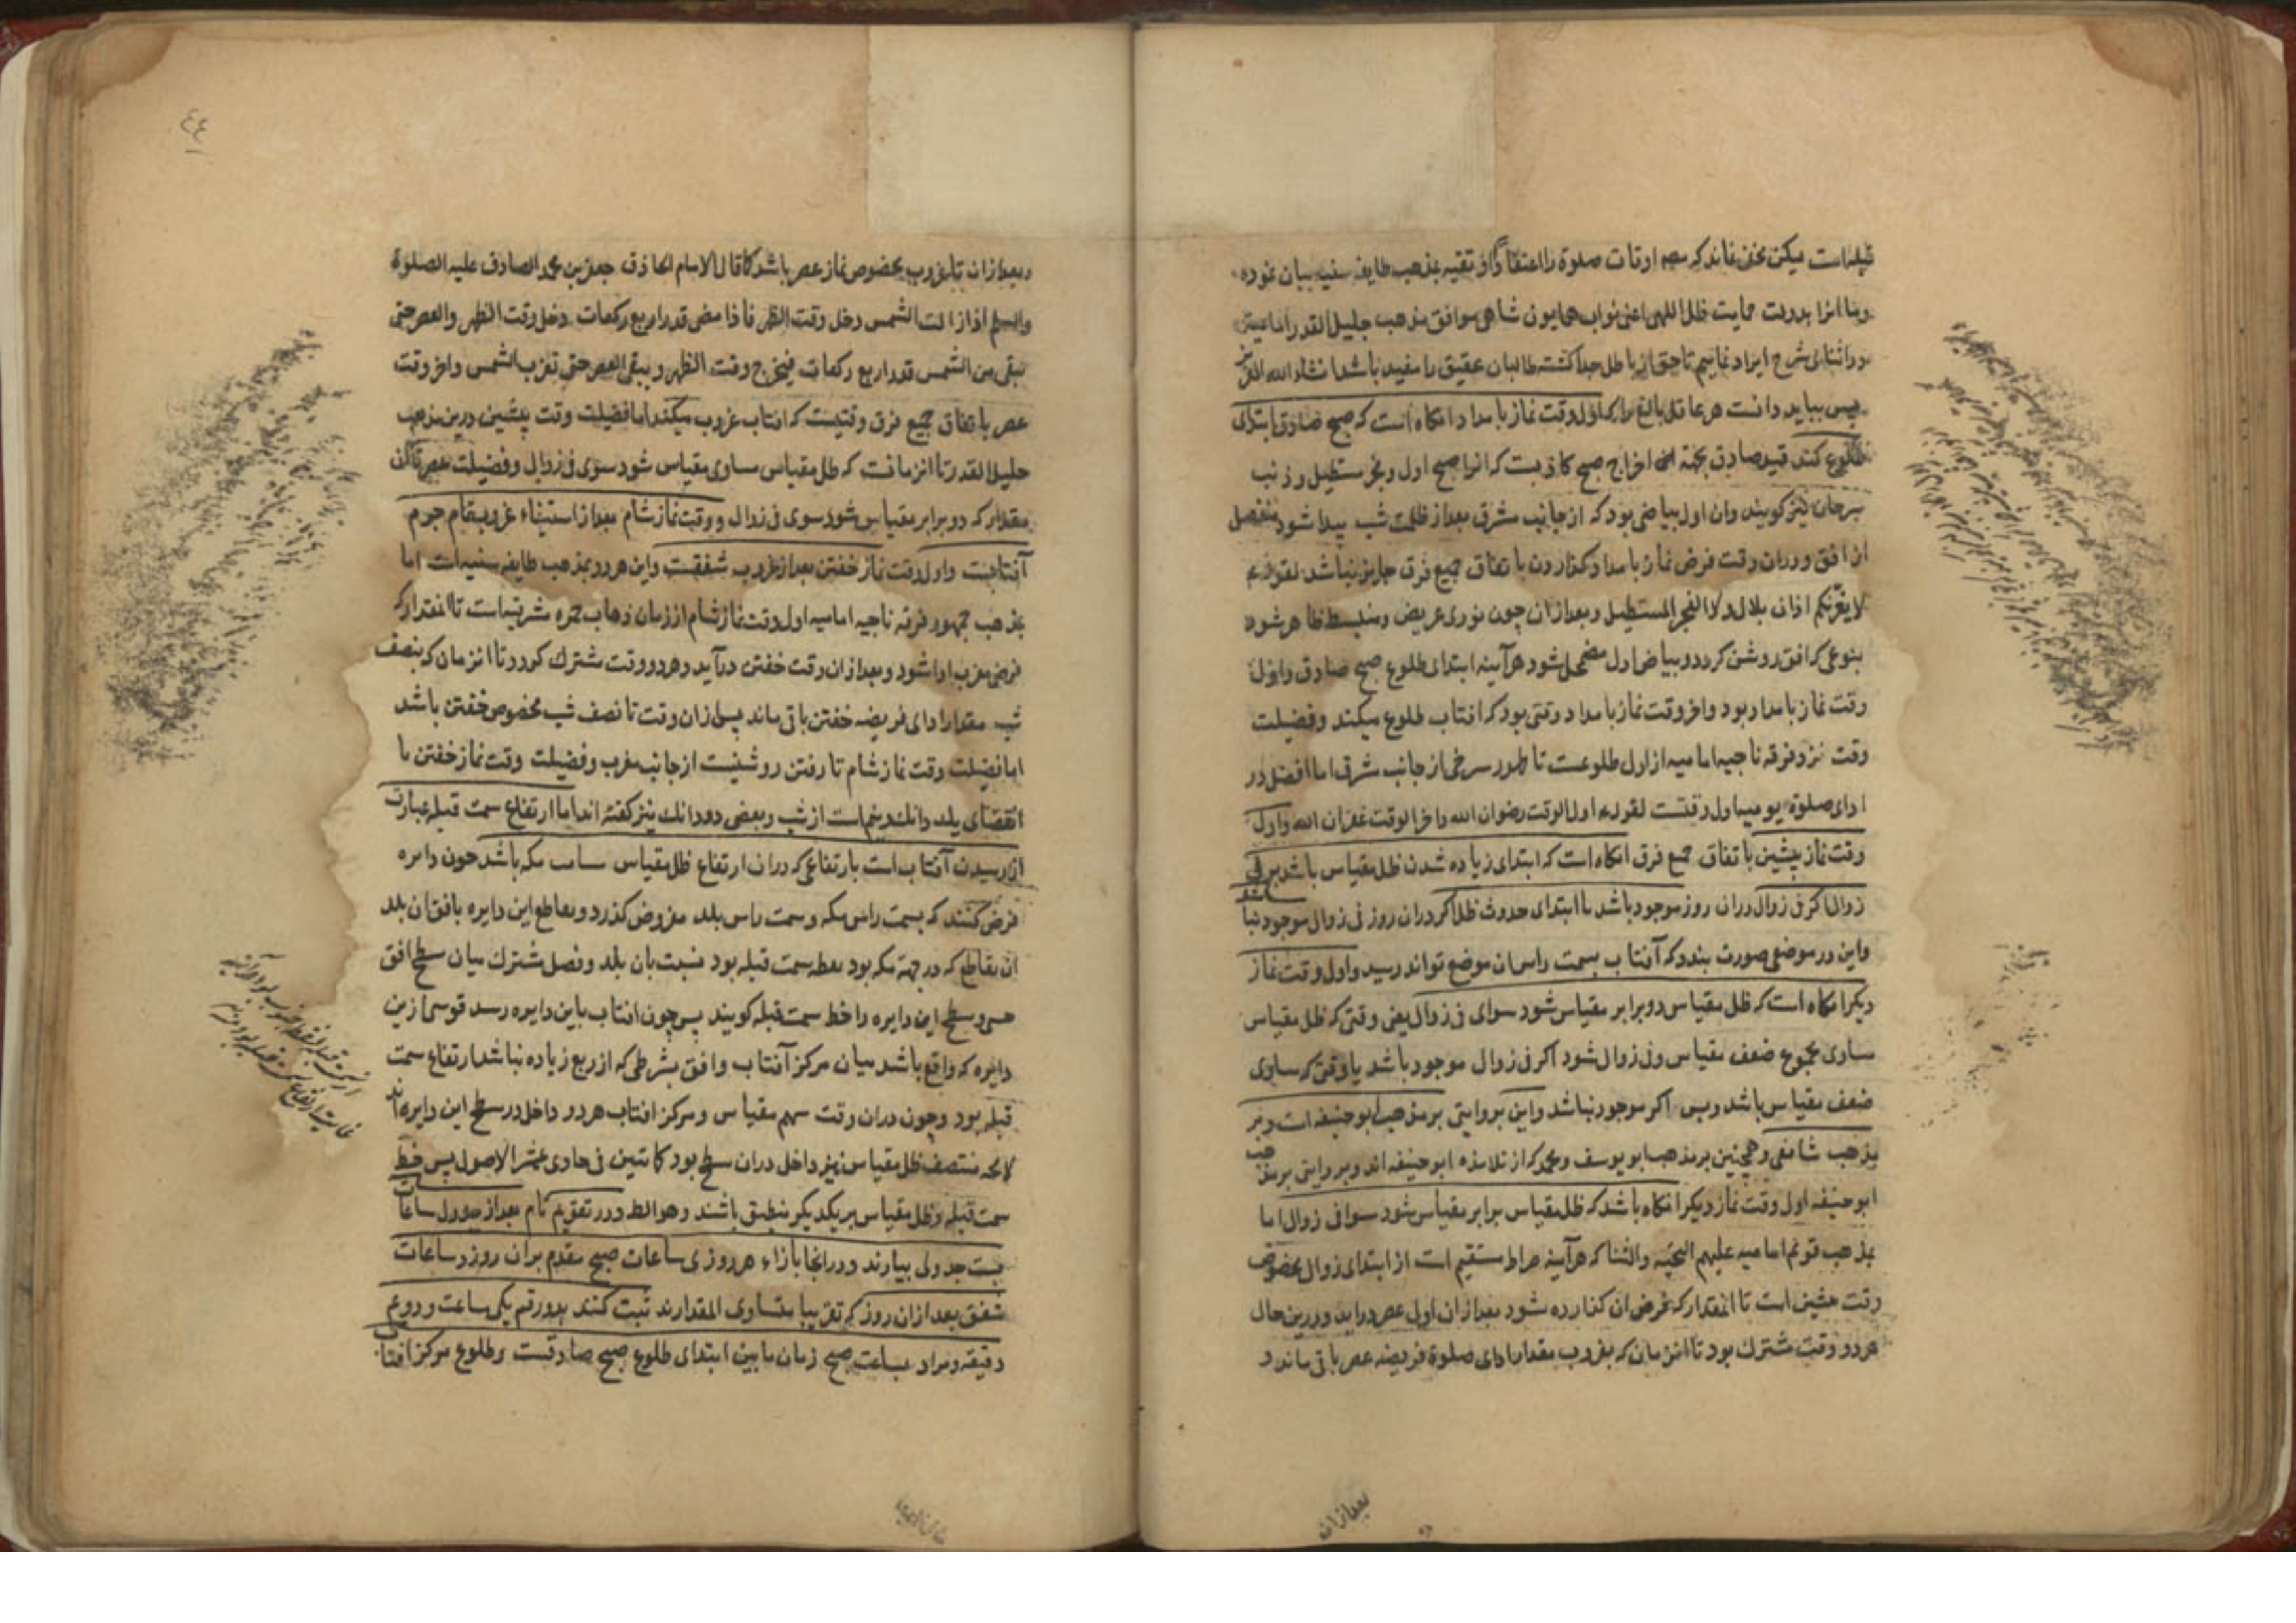 قبله است لیکن مخفی نماند که مص اوقات صلوة را اعتقاداً او تقیه بمذهب طایفه سنیه بیان نموده
وما انرا بدولت حمایت ظل اللهی اعنی نواب همایون شاهی موافق مذهب جلیل القدر امامیه
در اثنای شرح ایراد نماییم تا حق از باطل جدا گشته طالبان تحقیق را مفید باشد انشاء الله العزیز
پس بباید دانست هر عاقل بالغ را که اول وقت نماز بامداد انکاه است که صبح صادق ابتدای
طلوع کند قید صادق بجهة اخراج صبح کاذبست که انرا صبح اول و فجر مستطیل و ذنب
سرحان نیز کویند وان اول بیاضی بود که از جانب مشرق بعد از ظلمت شب پیدا شود منفصل
از افق ودران وقت فرض نماز بامداد کذاردن با تفاق جمیع فرق جایز نباشد لقوله ع
لا یغرنکم اذان بلال ولا الفجر المستطیل وبعد ازان چون نوری عریض ومنبسط ظاهر شود
بنوعی که افق روشن کردد و بیاض اول مضمحل شود هرآینه ابتدای طلوع صبح صادق واول
وقت نماز بامداد بود واخر وقت نماز بامداد وقتی بود که افتاب طلوع میکند وفضیلت
وقت نزد فرقه ناجیه امامیه از اول طلوعست تا ظهور سرخی از جانب شرق اما افضل در
ادای صلوة یومیه اول وقتست لقوله ع اول الوقت رضوان الله واخر الوقت غفران الله واول
وقت نماز پیشین باتفاق جمع فرق انکاه است که ابتدای زیاده شدن ظل مقیاس باشد بر فی
زوال اکر فی زوال دران روز موجود باشد یا ابتدای حدوث ظل اکر دران روز فی زوال موجود نباشد
واین در موضعی صورت بندد که آفتاب بسمت راس ان موضع تواند رسید واول وقت نماز
دیکر انکاه است که ظل مقیاس دو برابر مقیاس شود سوای فی زوال یعنی وقتی که ظل مقیاس
مساوی مجموع ضعف مقیاس وفی زوال شود اکر فی زوال موجود باشد یا وقتی که مساوی
ضعف مقیاس باشد وبس اکر موجود نباشد واین بروایتی بر مذهب ابو حنیفه است وبر
مذهب شافعی وهمچنین بر مذهب ابو یوسف ومحمد که از تلامذه ابو حنیفه اند وبر وایتی بر مذهب
ابو حنیفه اول وقت نماز دیکر انکاه باشد که ظل مقیاس برابر مقیاس شود سوا فی زوال اما
بمذهب قویم امامیه علیهم التحیه والثنا که هرآینه صراط مستقیم است از ابتدای زوال مخصوص
وقت پیشین است تا انمقدار که فرض ان کذارده شود بعد ازان اول عصر دراید ودرین حال
هر دو وقت مشترک بود تا انزمان که بغروب مقدار ادای صلوة فریضه عصر باقی ماند و
بعد ازان
٤٤
وبعد ازان تا بغروب مخصوص نماز عصر باشد کما قال الامام الحاذق جعفر بن محمد الصادق علیه الصلوة
والسلم اذا زالت الشمس دخل وقت الظهر فاذا مضی قدر اربع رکعات دخل وقت الظهر والعصر حتی
یبقی من الشمس قدر اربع رکعات فیخرج وقت الظهر ویبقی العصر حتی تغرب الشمس واخر وقت
عصر باتفاق جمیع فرق وقتیست که افتاب غروب میکند اما فضیلت وقت پیشین درین مذهب
جلیل القدر تا انزمانست که ظل مقیاس مساوی مقیاس شود سوی فی زوال وفضیلت عصر تا ان
مقدار که دو برابر مقیاس شود سوی فی زوال ووقت نماز شام بعد از استیفاء غروب تمام جرم
آفتابست واول وقت نماز خفتن بعد از غروب شفقست واین هر دو بمذهب طایفه سنیه است اما
بمذهب جمهور فرقه ناجیه امامیه اول وقت نماز شام از زمان ذهاب حمره مشرقیه است تا انمقدار که
فرض مغرب ادا شود وبعد ازان وقت خفتن درآید وهر دو وقت مشترک کردد تا انزمان که بنصف
شب مقدار ادای فریضه خفتن باقی ماند پس ازان وقت تا نصف شب مخصوص خفتن باشد
اما فضیلت وقت نماز شام تا رفتن روشنیست از جانب مغرب وفضیلت وقت نماز خفتن تا
انقضای یک دانک ونیم است از شب وبعضی دو دانک نیز کفته اند اما ارتفاع سمت قبله عبارت
از رسیدن آفتاب است بارتفاعی که دران ارتفاع ظل مقیاس مسامت مکه باشد چون دایره
فرض کنند که بسمت راس مکه وسمت راس بلد مفروض کذرد وتقاطع این دایره بافق ان بلد
ان تقاطع که در جهة مکه بود نقطه سمت قبله بود نسبت بان بلد وفصل مشترک میان سطح افق
حسی وسطح این دایره را خط سمت قبله کویند پس چون افتاب باین دایره رسد قوسی ازین
دایره که واقع باشد میان مرکز آفتاب وافق بشرطی که از ربع زیاده نباشد ارتفاع سمت
قبله بود وچون دران وقت سهم مقیاس ومرکز افتاب هر دو داخل در سطح این دایره اند
لا محه منتصف ظل مقیاس نیز داخل دران سطح بود کما تبین فی حاوی عشر الاصول پس خط
سمت قبله وظل مقیاس بر یکدیکر منطبق باشند وهو المط ودر تقویم تام بعد از جدول ساعات
بیست جدولی بیارند ودر انجا بازاء هر روزی ساعات صبح مقدم بران روز وساعات
شفق بعد ازان روز که تقریبا متساوی المقدارند ثبت کنند بدو رقم یکی ساعت ودوم
دقیقه ومراد بساعت صبح زمان ما بین ابتدای طلوع صبح صادقست وطلوع مرکز افتاب